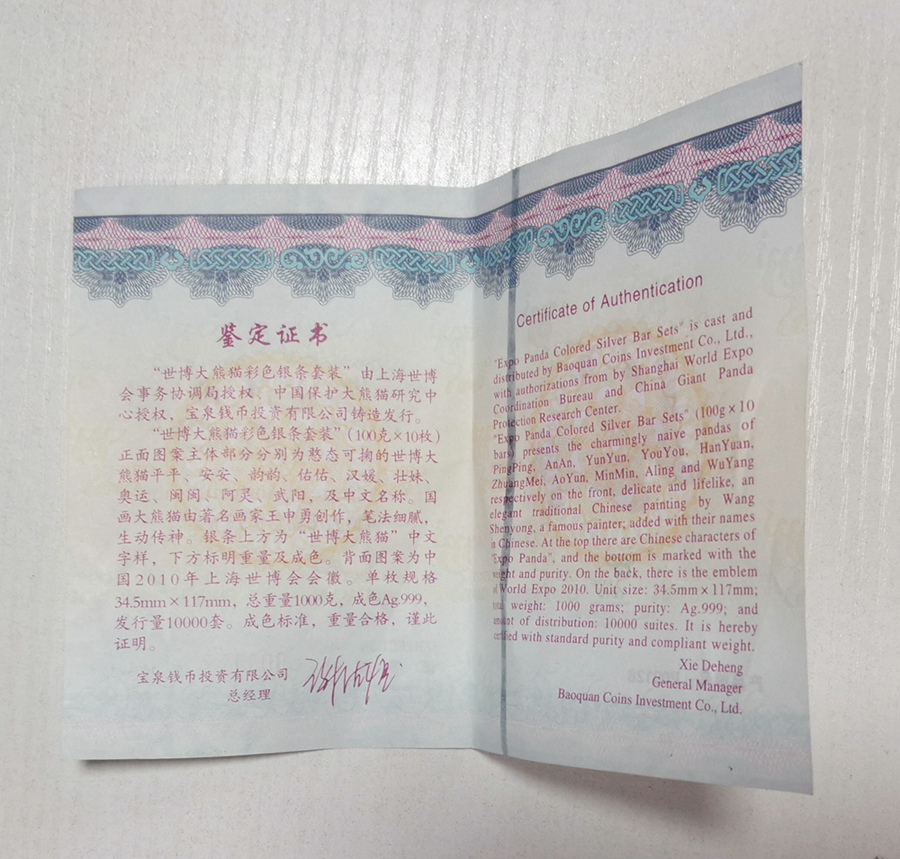 鉴定证书
“世博大熊猫彩色银条套装”由上海世博
会事务协调局授权、中国保护大熊猫研究中
心授权，宝泉钱币投资有限公司铸造发行。
“世博大熊猫彩色银条套装”(100克×10枚)
正面图案主体部分分别为憨态可掬的世博大
熊猫平平、安安、韵韵、佑佑、汉媛、壮妹、
奥运、闽闽、阿灵、武阳，及中文名称。国
画大熊猫由著名画家王申勇创作，笔法细腻，
生动传神。银条上方为“世博大熊猫”中文
字样，下方标明重量及成色。背面图案为中
国2010年上海世博会会徽。单枚规格
34.5mm×117mm，总重量1000克，成色Ag.999，
发行量10000套。成色标准，重量合格，谨此
证明。
宝泉钱币投资有限公司
总经理
Certificate of Authentication
"Expo Panda Colored Silver Bar Sets" is cast and
distributed by Baoquan Coins Investment Co., Ltd.,
with authorizations from by Shanghai World Expo
Coordination Bureau and China Giant Panda
Protection Research Center.
"Expo Panda Colored Silver Bar Sets" (100g×10
bars) presents the charmingly naive pandas of
PingPing, AnAn, YunYun, YouYou, HanYuan,
ZhuangMei, AoYun, MinMin, Aling and WuYang
respectively on the front, delicate and lifelike, an
elegant traditional Chinese painting by Wang
Shenyong, a famous painter; added with their names
in Chinese. At the top there are Chinese characters of
"Expo Panda", and the bottom is marked with the
weight and purity. On the back, there is the emblem
of World Expo 2010. Unit size: 34.5mm×117mm;
total weight: 1000 grams; purity: Ag.999; and
amount of distribution: 10000 suites. It is hereby
certified with standard purity and compliant weight.
Xie Deheng
General Manager
Baoquan Coins Investment Co., Ltd.